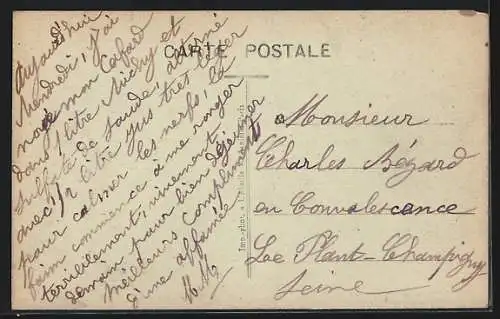 CARTE POSTALE
Aujourd'hui
Vendredi, j'ai
noyé mon cafard
dans 1 litre Vichy et
sulfate de soude, alterné
avec 1/2 litre jus très léger
pour calmer les nerfs, la
faim commence à me ronger
terriblement, vivement
demain pour bien déjeuner
Meilleurs compliments
d'une affamée
Monsieur
Charles Bézard
en Convalescence
Le Plant-Champigny
Seine